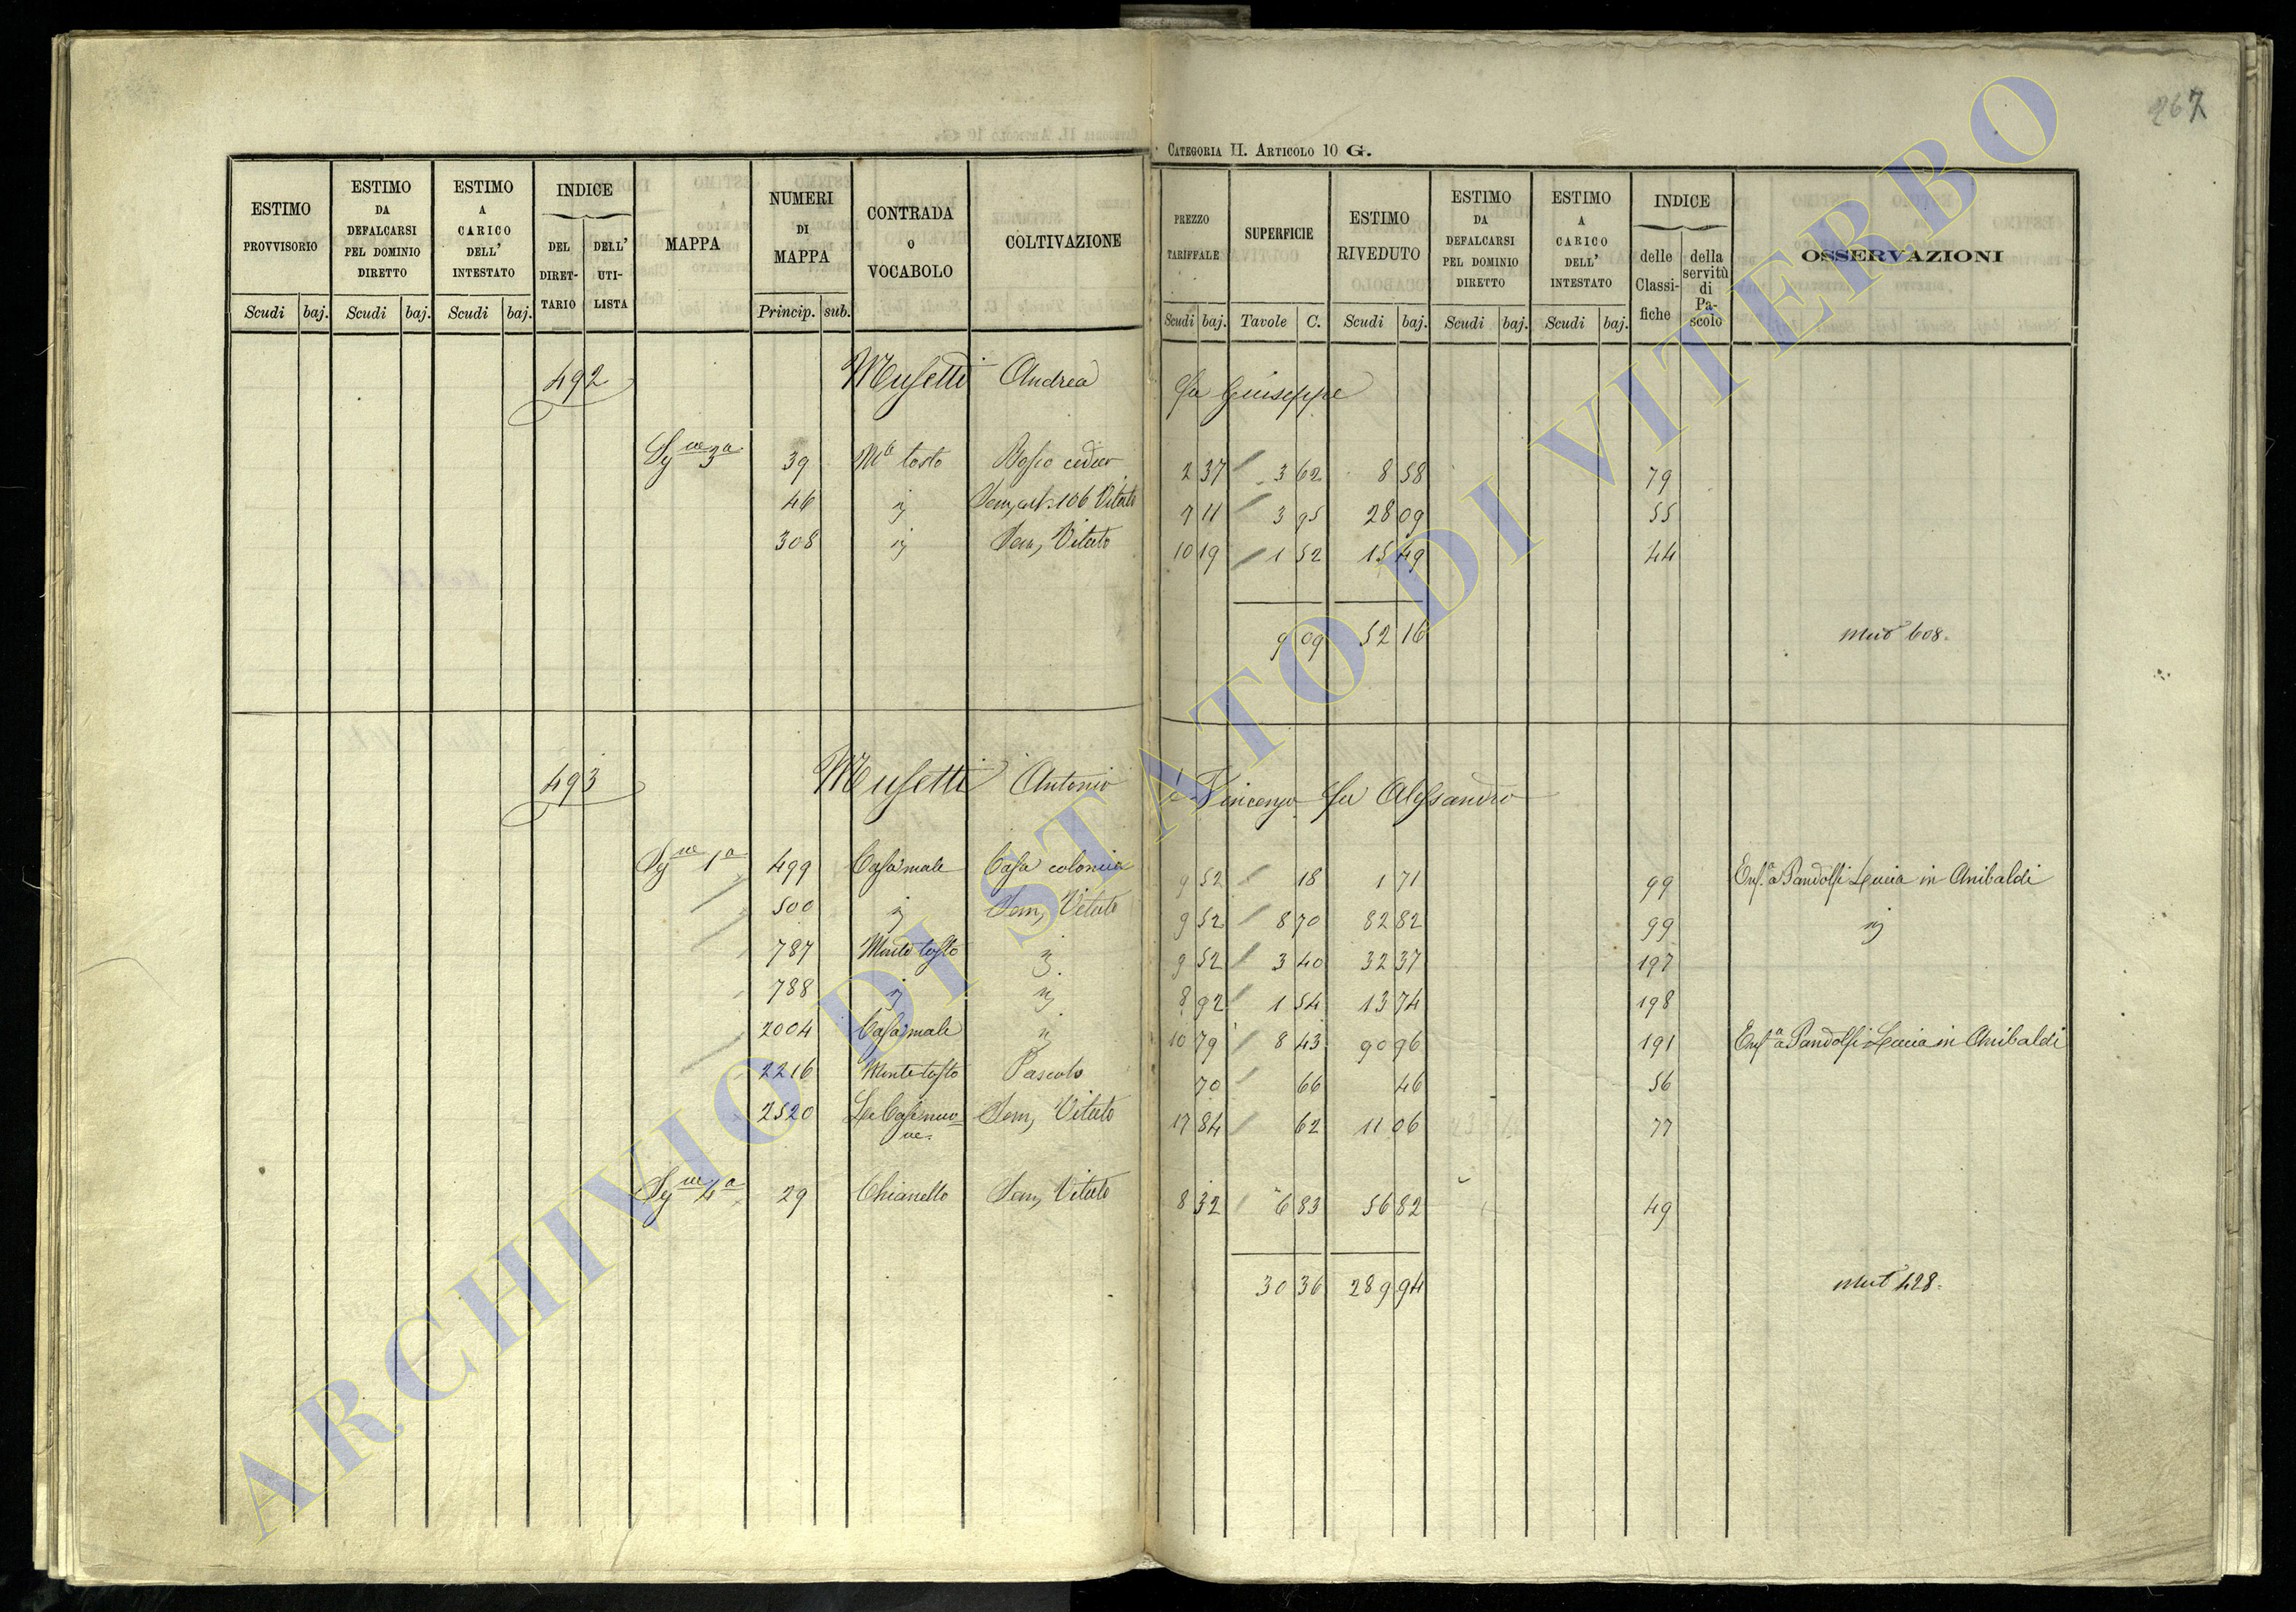 267
CATEGORIA II. ARTICOLO 10 G.
ESTIMO PROVVISORIO Scudi baj.
ESTIMO DA DEFALCARSI PEL DOMINIO DIRETTO Scudi baj.
ESTIMO A CARICO DELL' INTESTATO Scudi baj.
INDICE DEL DIRET-TARIO DELL' UTI-LISTA
MAPPA
NUMERI DI MAPPA Princip. sub.
CONTRADA O VOCABOLO
COLTIVAZIONE
PREZZO TARIFFALE Scudi baj.
SUPERFICIE Tavole C.
ESTIMO RIVEDUTO Scudi baj.
ESTIMO DA DEFALCARSI PEL DOMINIO DIRETTO Scudi baj.
ESTIMO A CARICO DELL' INTESTATO Scudi baj.
INDICE delle Classi-fiche della servitù di Pa-scolo
OSSERVAZIONI
492 Musetti Andrea fu Giuseppe
Sq.ne 3a 39 M.e tosto Bosco ceduo 2 37 3 62 8 58 79
46 ij Sem, art. 106 Vitato 7 11 3 95 28 09 55
308 ij Sem, Vitato 10 19 1 52 15 49 44
9 09 52 16 Mut 608.
493 Musetti Antonio e Vincenzo fu Alessandro
1a 499 Casamale Casa colonica 9 52 18 1 71 99 Enf.a a Pandolfi Lucia in Anibaldi
500 ij Sem, Vitato 9 52 8 70 82 82 99 ij
787 Monte tosto ij 9 52 3 40 32 37 197
788 ij ij 8 92 1 54 13 74 198
2004 Casamale ij 10 79 8 43 90 96 191 Enf.a a Pandolfi Lucia in Anibaldi
2216 Monte tosto Pascolo 70 66 46 56
2520 Le Casenuo=ve Sem, Vitato 17 84 62 11 06 77
4a 29 Chianello Sem, Vitato 8 32 6 83 56 82 49
30 36 289 94 Mut 428.
ARCHIVIO DI STATO DI VITERBO